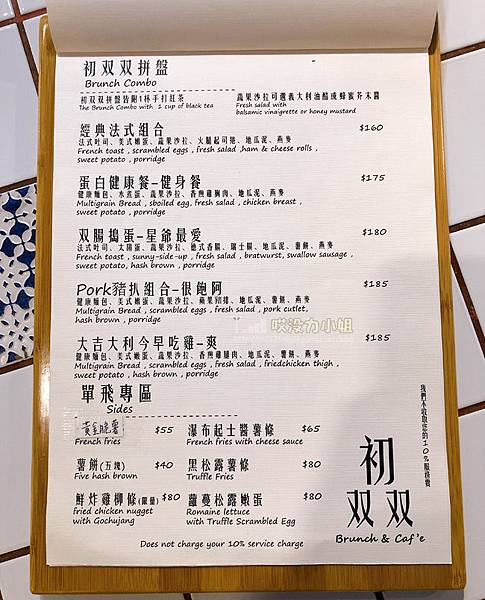 初双双拼盤
Brunch Combo
初双双拼盤皆附1杯手打紅茶
The Brunch Combo with 1 cup of black tea
蔬果沙拉可選義大利油醋或蜂蜜芥末醬
Fresh salad with
balsamic vinaigrette or honey mustard
經典法式組合 $160
法式吐司、美式嫩蛋、蔬果沙拉、火腿起司捲、地瓜泥、燕麥
French toast , scrambled eggs , fresh salad ,ham & cheese rolls ,
sweet potato , porridge
蛋白健康餐-健身餐 $175
健康麵包、水煮蛋、蔬果沙拉、香煎雞胸肉、地瓜泥、燕麥
Multigrain Bread , sboiled egg, fresh salad , chicken breast ,
sweet potato , porridge
双腸搗蛋-星爺最愛 $180
法式吐司、太陽蛋、蔬果沙拉、德式香腸、瑞士腸、地瓜泥、薯餅、燕麥
French toast , sunny-side-up , fresh salad , bratwurst, swallow sausage ,
sweet potato, hash brown , porridge
Pork豬扒組合-很飽阿 $185
健康麵包、美式嫩蛋、蔬果沙拉、蘋果豬排、地瓜泥、薯餅、燕麥
Multigrain Bread , scrambled eggs , fresh salad , pork cutlet,
hash brown , porridge
哎没力小姐
大吉大利今早吃雞-爽 $185
健康麵包、美式嫩蛋、蔬果沙拉、香煎雞腿肉、地瓜泥、薯餅、燕麥
Multigrain Bread , scrambled eggs , fresh salad , friedchicken thigh ,
sweet potato , hash brown , porridge
單飛專區
Sides
黃金脆薯 $55
French fries
瀑布起士醬薯條 $65
French fries with cheese sauce
薯餅(五塊) $40
Five hash brown
黑松露薯條 $80
Truffle Fries
鮮炸雞柳條(限量) $80
fried chicken nugget
with Gochujang
蘿蔓松露嫩蛋 $80
Romaine lettuce
with Truffle Scrambled Egg
Does not charge your 10% service charge
我們不收取您的10%服務費
初
双双
Brunch & Caf'e